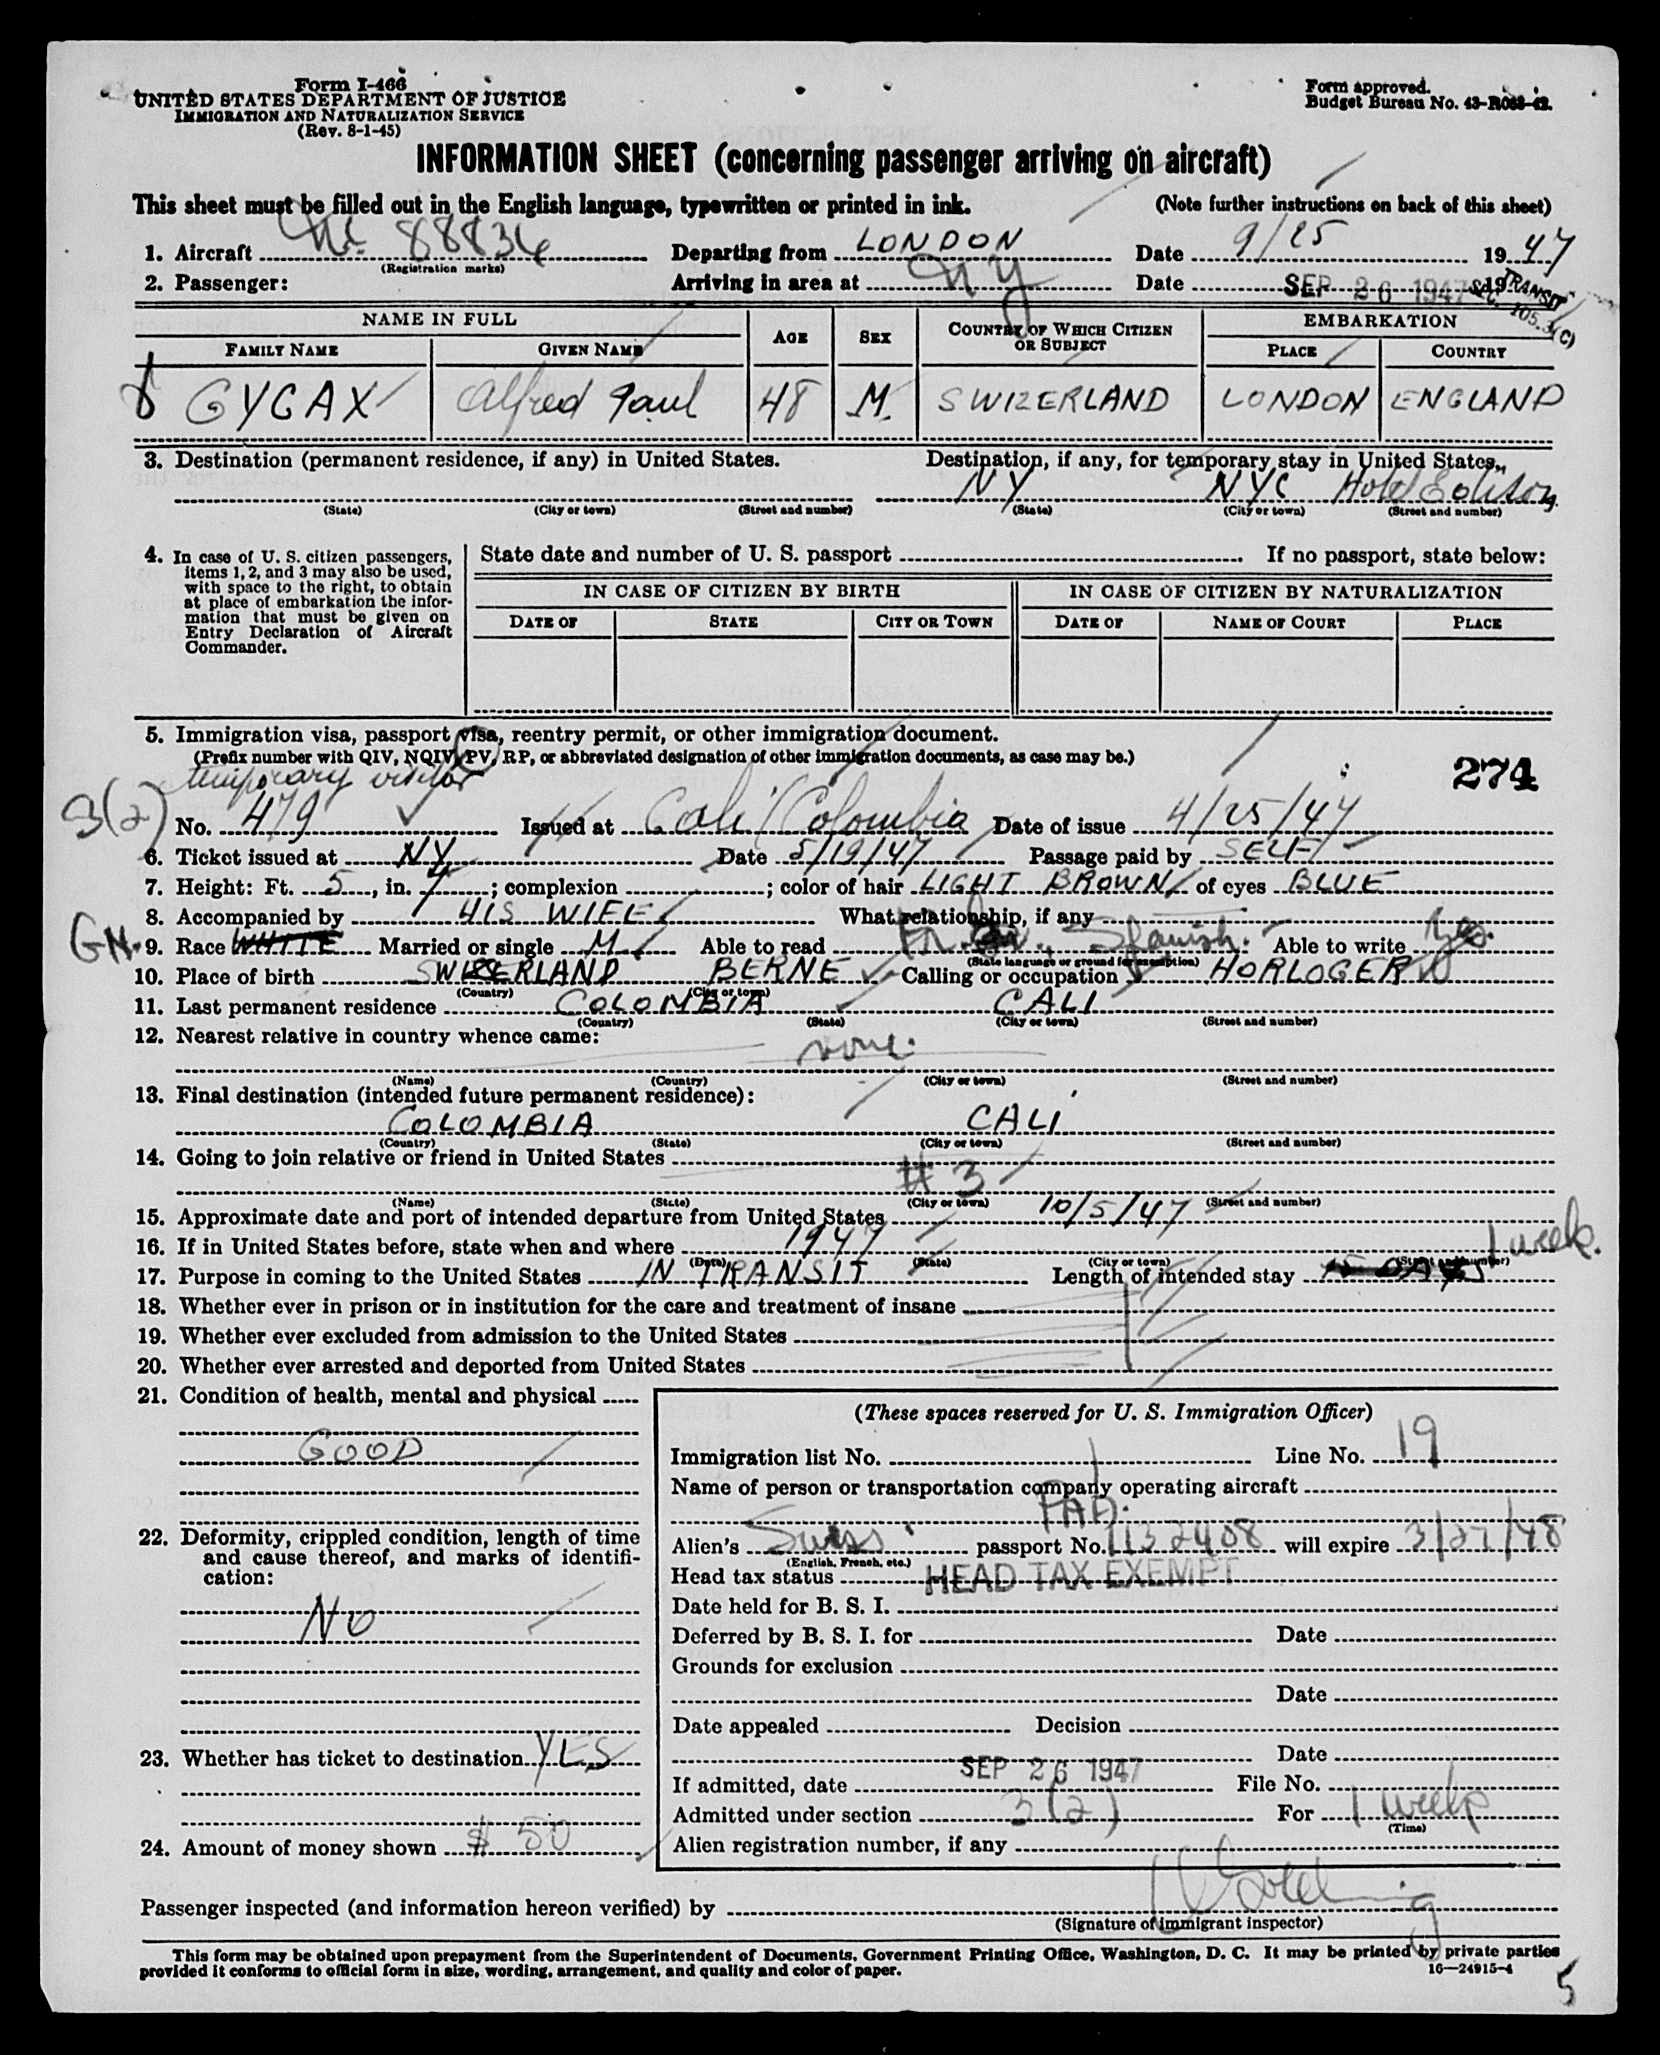 Form I-466
UNITED STATES DEPARTMENT OF JUSTICE
IMMIGRATION AND NATURALIZATION SERVICE
(Rev. 8-1-45)
Form approved.
Budget Bureau No. 43-R083-42.
INFORMATION SHEET (concerning passenger arriving on aircraft)
This sheet must be filled out in the English language, typewritten or printed in ink. (Note further instructions on back of this sheet)
1. Aircraft NC 88836 Departing from LONDON Date 9/25 1947
(Registration marks)
2. Passenger: Arriving in area at NY Date SEP 26 1947 19
TRANSIT
SEC. 105.3(C)
NAME IN FULL AGE SEX COUNTRY OF WHICH CITIZEN OR SUBJECT EMBARKATION
FAMILY NAME GIVEN NAME PLACE COUNTRY
GYGAX Alfred Paul 48 M SWIZERLAND LONDON ENGLAND
3. Destination (permanent residence, if any) in United States. Destination, if any, for temporary stay in United States,
NY NYC Hotel Edison
(State) (City or town) (Street and number) (State) (City or town) (Street and number)
4. In case of U. S. citizen passengers, items 1, 2, and 3 may also be used, with space to the right, to obtain at place of embarkation the information that must be given on Entry Declaration of Aircraft Commander.
State date and number of U. S. passport If no passport, state below:
IN CASE OF CITIZEN BY BIRTH IN CASE OF CITIZEN BY NATURALIZATION
DATE OF STATE CITY OR TOWN DATE OF NAME OF COURT PLACE
5. Immigration visa, passport visa, reentry permit, or other immigration document.
(Prefix number with QIV, NQIV, PV, RP, or abbreviated designation of other immigration documents, as case may be.)
temporary visitor 274
3(2) No. 479 Issued at Cali/Colombia Date of issue 4/25/47
6. Ticket issued at NY Date 5/19/47 Passage paid by SELF
7. Height: Ft. 5, in. 7; complexion ; color of hair LIGHT BROWN of eyes BLUE
8. Accompanied by HIS WIFE What relationship, if any
9. Race WHITE Married or single M Able to read Spanish. Able to write Yes.
(State language or ground for exemption)
10. Place of birth SWIZERLAND BERNE Calling or occupation HORLOGER
(Country) (City or town)
11. Last permanent residence COLOMBIA CALI
(Country) (State) (City or town) (Street and number)
12. Nearest relative in country whence came:
none.
(Name) (Country) (City or town) (Street and number)
13. Final destination (intended future permanent residence):
COLOMBIA CALI
(Country) (State) (City or town) (Street and number)
14. Going to join relative or friend in United States
# 3
(Name) (State) (City or town) (Street and number)
15. Approximate date and port of intended departure from United States 10/5/47
16. If in United States before, state when and where 1947
(Date) (State) (City or town) (Street and number)
17. Purpose in coming to the United States IN TRANSIT Length of intended stay 1 week.
18. Whether ever in prison or in institution for the care and treatment of insane
19. Whether ever excluded from admission to the United States
20. Whether ever arrested and deported from United States
21. Condition of health, mental and physical
GOOD
22. Deformity, crippled condition, length of time
and cause thereof, and marks of identifi-
cation:
NO
23. Whether has ticket to destination YES
24. Amount of money shown $ 50
(These spaces reserved for U. S. Immigration Officer)
Immigration list No. 1 Line No. 19
Name of person or transportation company operating aircraft
Alien's Swiss passport No. 1132408 will expire 3/27/48
(English, French, etc.)
Head tax status HEAD TAX EXEMPT
Date held for B. S. I.
Deferred by B. S. I. for Date
Grounds for exclusion
Date
Date appealed Decision
Date
If admitted, date SEP 26 1947 File No.
Admitted under section 3(2) For 1 week
(Time)
Alien registration number, if any
Passenger inspected (and information hereon verified) by
(Signature of immigrant inspector)
This form may be obtained upon prepayment from the Superintendent of Documents, Government Printing Office, Washington, D. C. It may be printed by private parties
provided it conforms to official form in size, wording, arrangement, and quality and color of paper.
16—24915-4
5